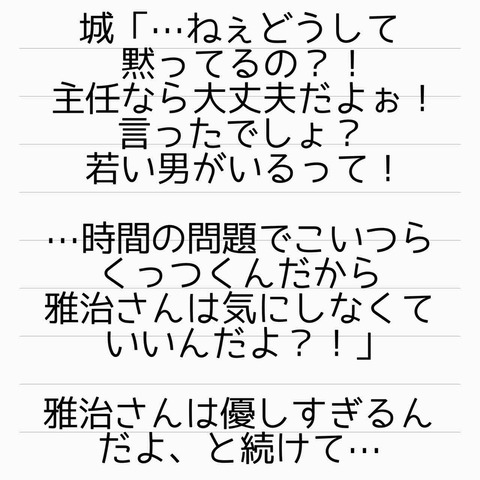 城「…ねぇどうして
黙ってるの？！
主任なら大丈夫だよぉ！
言ったでしょ？
若い男がいるって！
…時間の問題でこいつら
くっつくんだから
雅治さんは気にしなくて
いいんだよ？！」
雅治さんは優しすぎるん
だよ、と続けて…